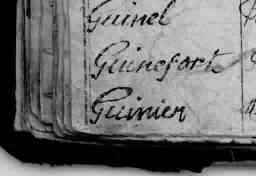 Guinel
Guinefort
Guinier